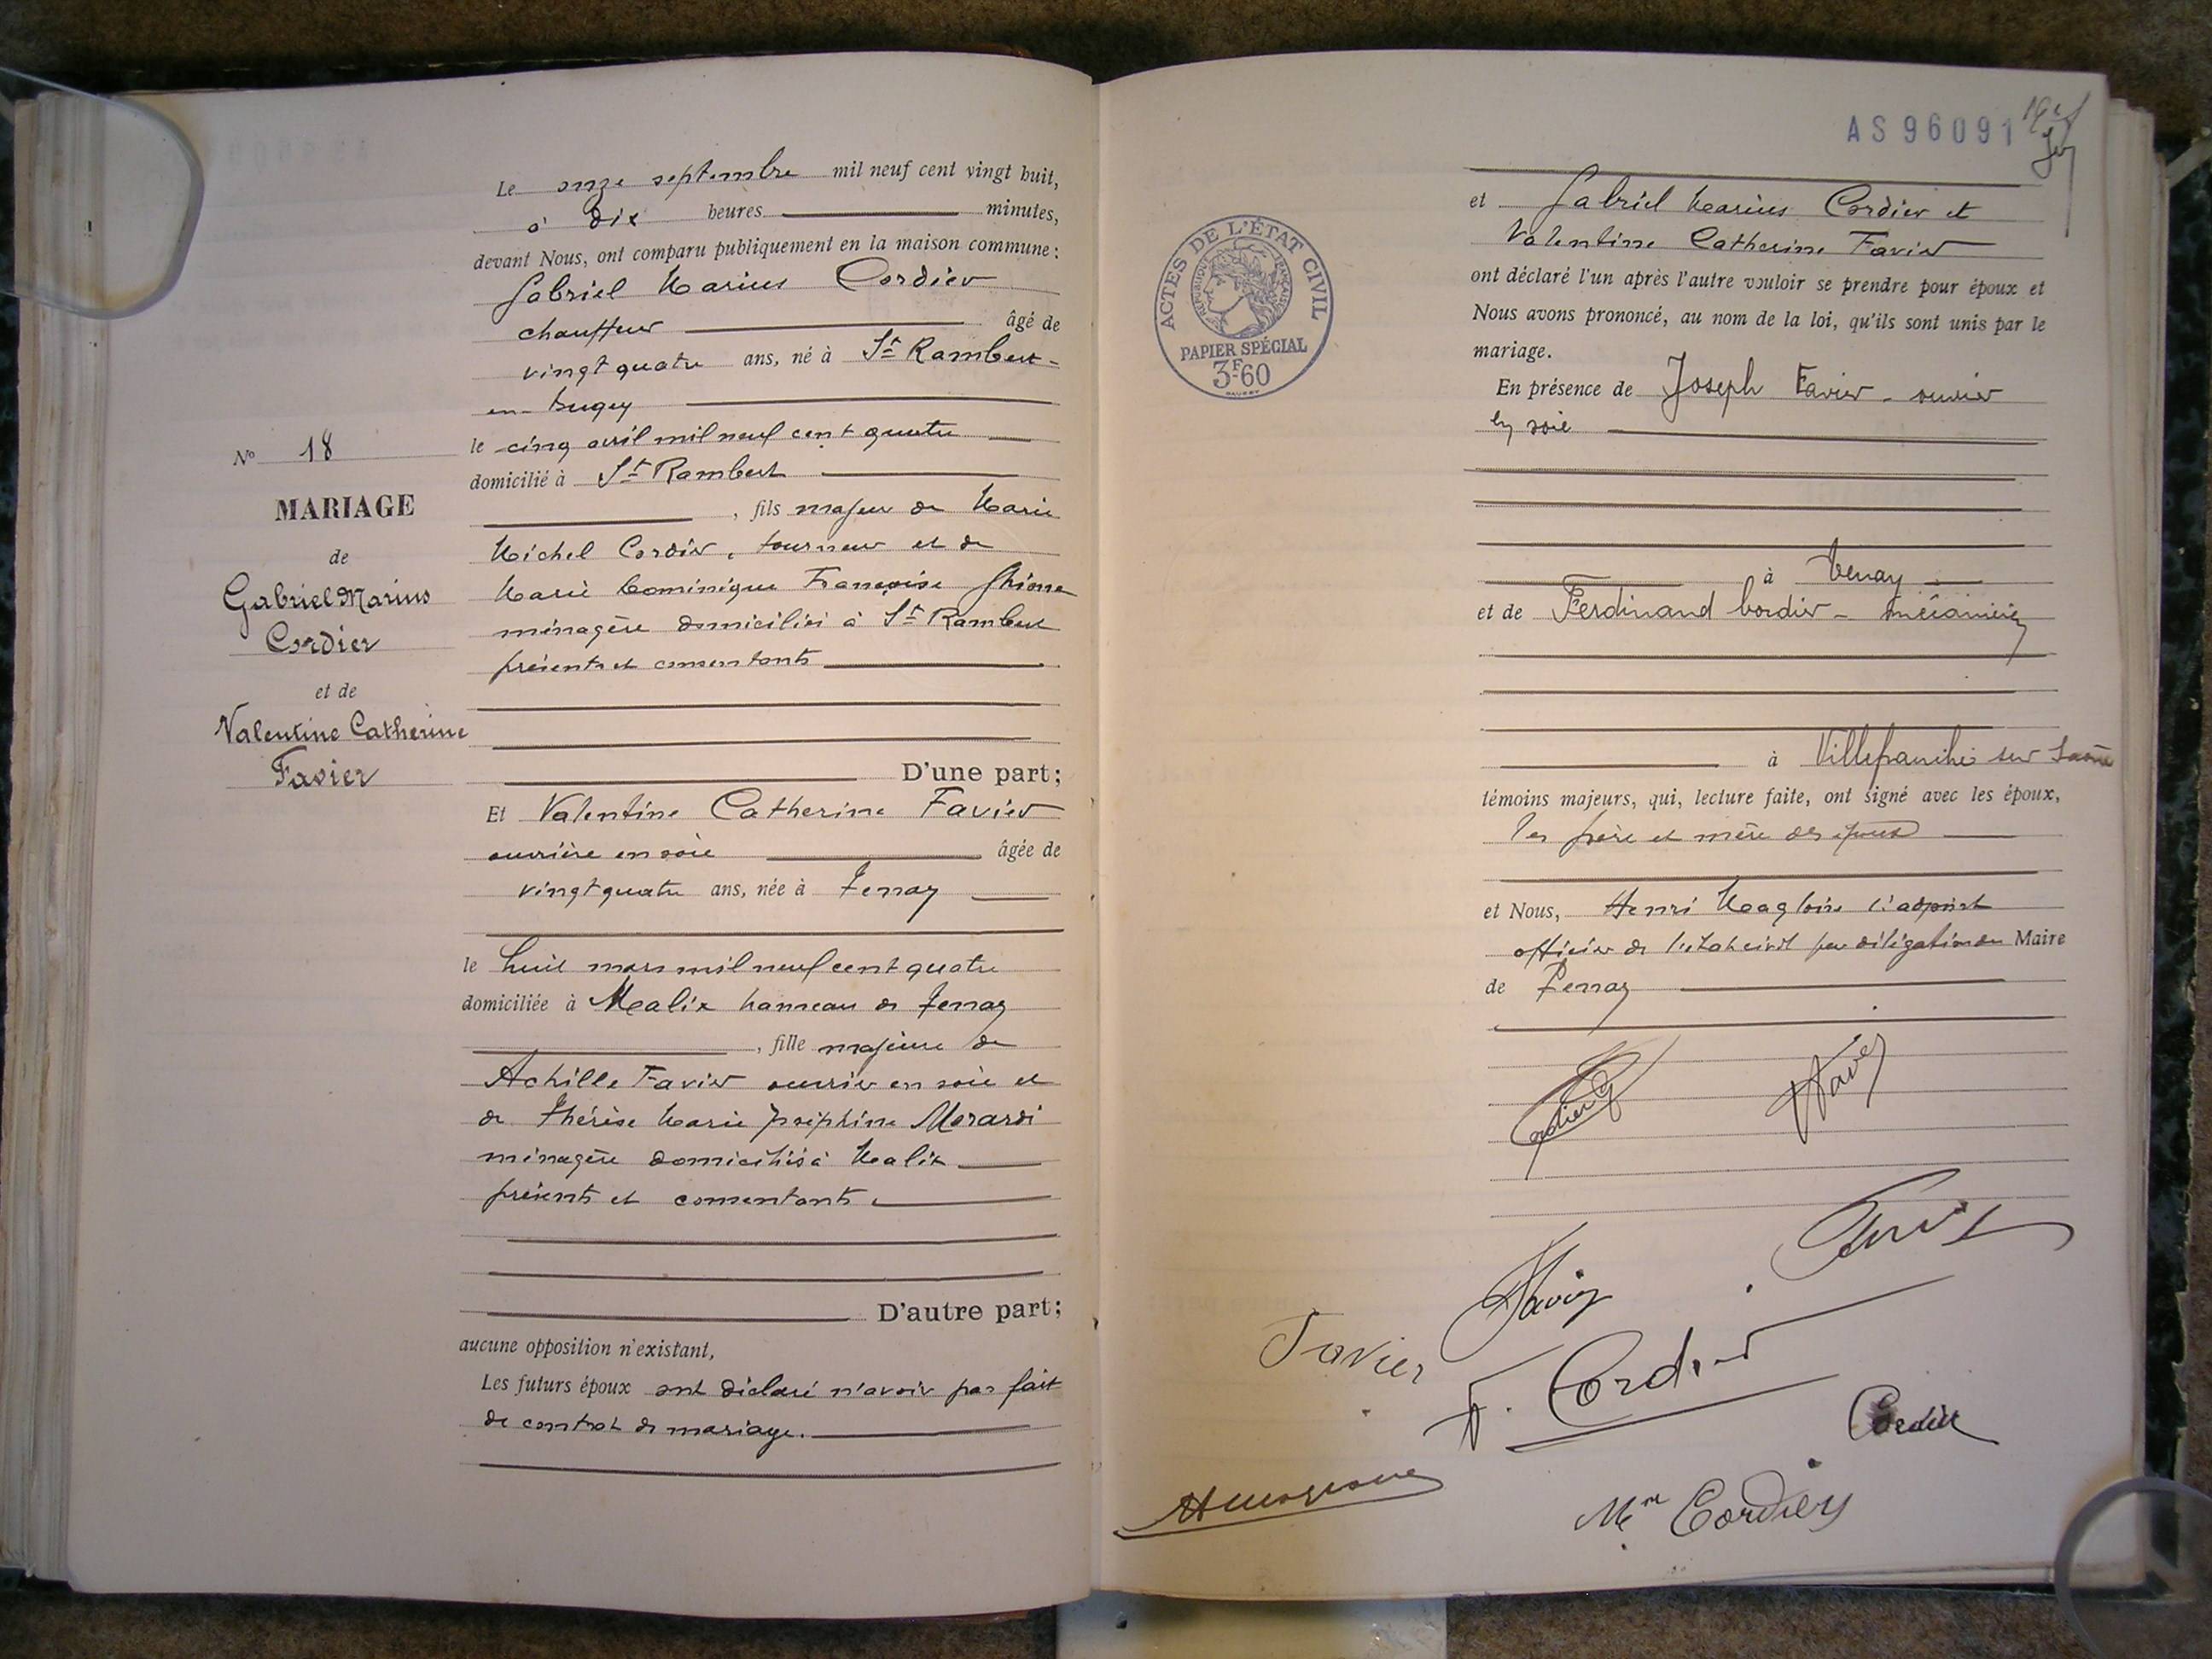 N° 18
MARIAGE
de
Gabriel Marius
Cordier
et de
Valentine Catherine
Favier
Le onze septembre mil neuf cent vingt huit,
à dix heures minutes,
devant Nous, ont comparu publiquement en la maison commune :
Gabriel Marius Cordier
chauffeur âgé de
vingt quatre ans, né à St Rambert-
en-Bugey
le cinq avril mil neuf cent quatre
domicilié à St Rambert
, fils majeur de Marie
Michel Cordier, tourneur et de
Marie Dominique Françoise
ménagère domiciliés à St Rambert
présents et consentants
D'une part;
Et Valentine Catherine Favier
ouvrière en soie âgée de
vingt quatre ans, née à Tenay
le huit mars mil neuf cent quatre
domiciliée à Malix hameau de Tenay
, fille majeure de
Achille Favier ouvrier en soie et
de Thérèse Marie Joséphine Morardi
ménagère domiciliés à Malix
présents et consentants.
D'autre part;
aucune opposition n'existant,
Les futurs époux ont déclaré n'avoir pas fait
de contrat de mariage.
AS 96091
ACTES DE L'ÉTAT CIVIL
RÉPUBLIQUE FRANÇAISE
PAPIER SPÉCIAL
3F60
et Gabriel Marius Cordier et
Valentine Catherine Favier
ont déclaré l'un après l'autre vouloir se prendre pour époux et
Nous avons prononcé, au nom de la loi, qu'ils sont unis par le
mariage.
En présence de Joseph Favier - ouvrier
en soie
à Tenay
et de Ferdinand Cordier - mécanicien
à Villefranche sur Saône
témoins majeurs, qui, lecture faite, ont signé avec les époux,
les père et mère des époux
et Nous, Henri Magloire l'adjoint
officier de l'état civil par délégation du Maire
de Tenay
Cordier G
V Favier
Favier
Favier
F. Cordier
Cordier
Me Cordier